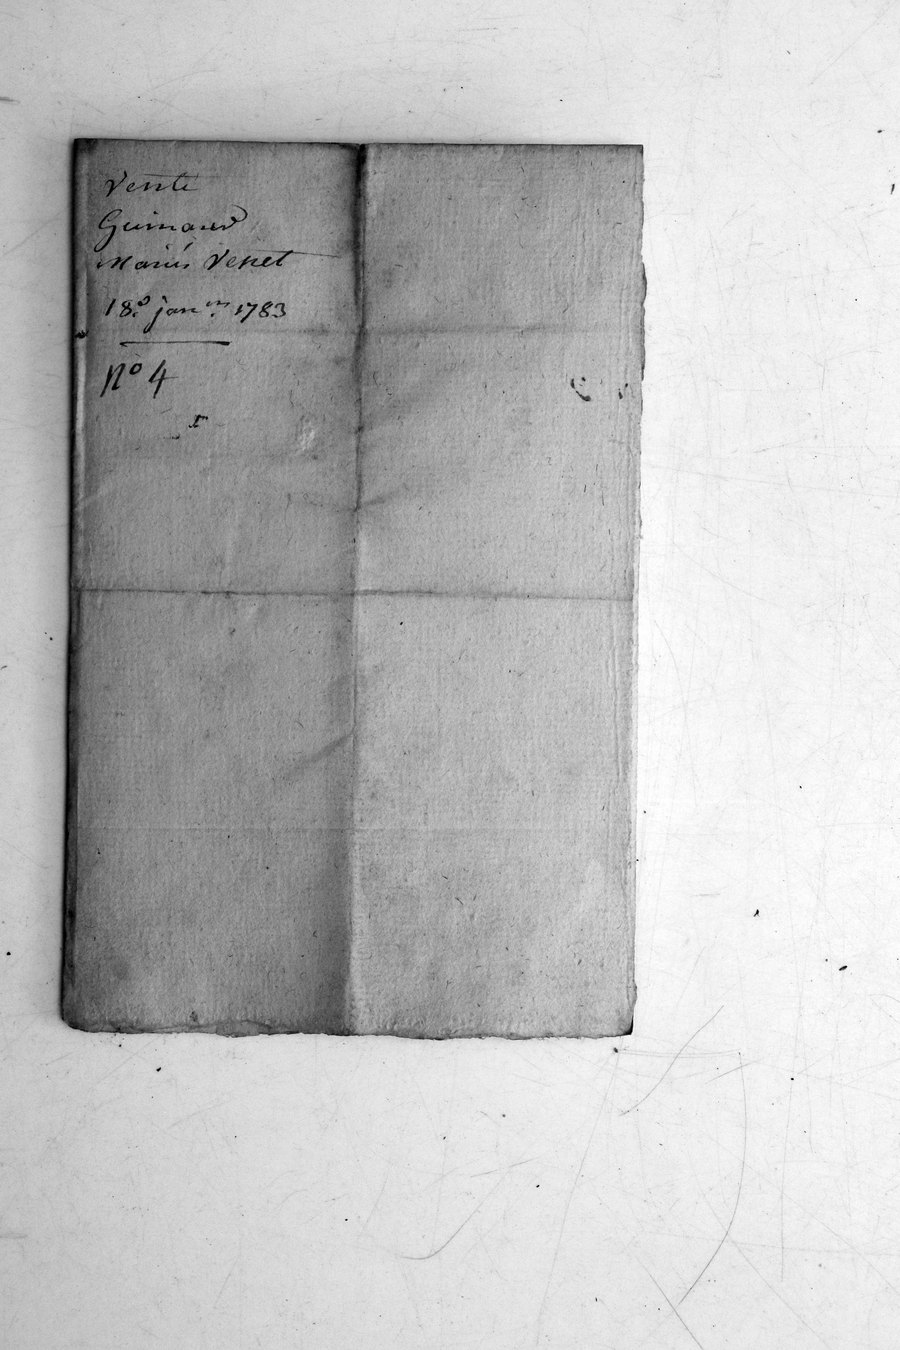 Vente
Guinand
Mariés Venet
18e janer 1783
No 4